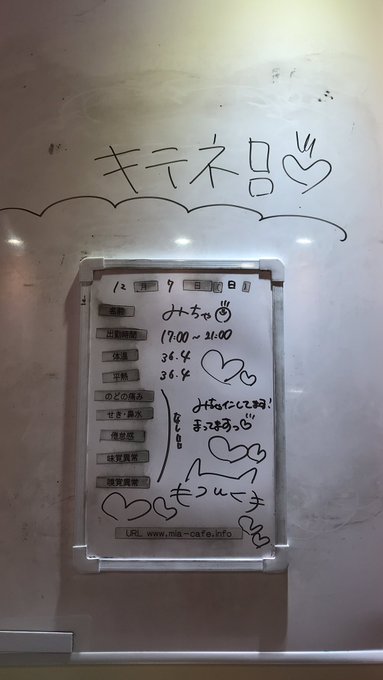 キテネ
12月7日(日)
名前 みちゃ
出勤時間 17:00~21:00
体温 36.4
平熱 36.4
のどの痛み
せき・鼻水
倦怠感
味覚異常
嗅覚異常
なし
みちゃインしてます!
まってますっ
URL www.mia-cafe.info